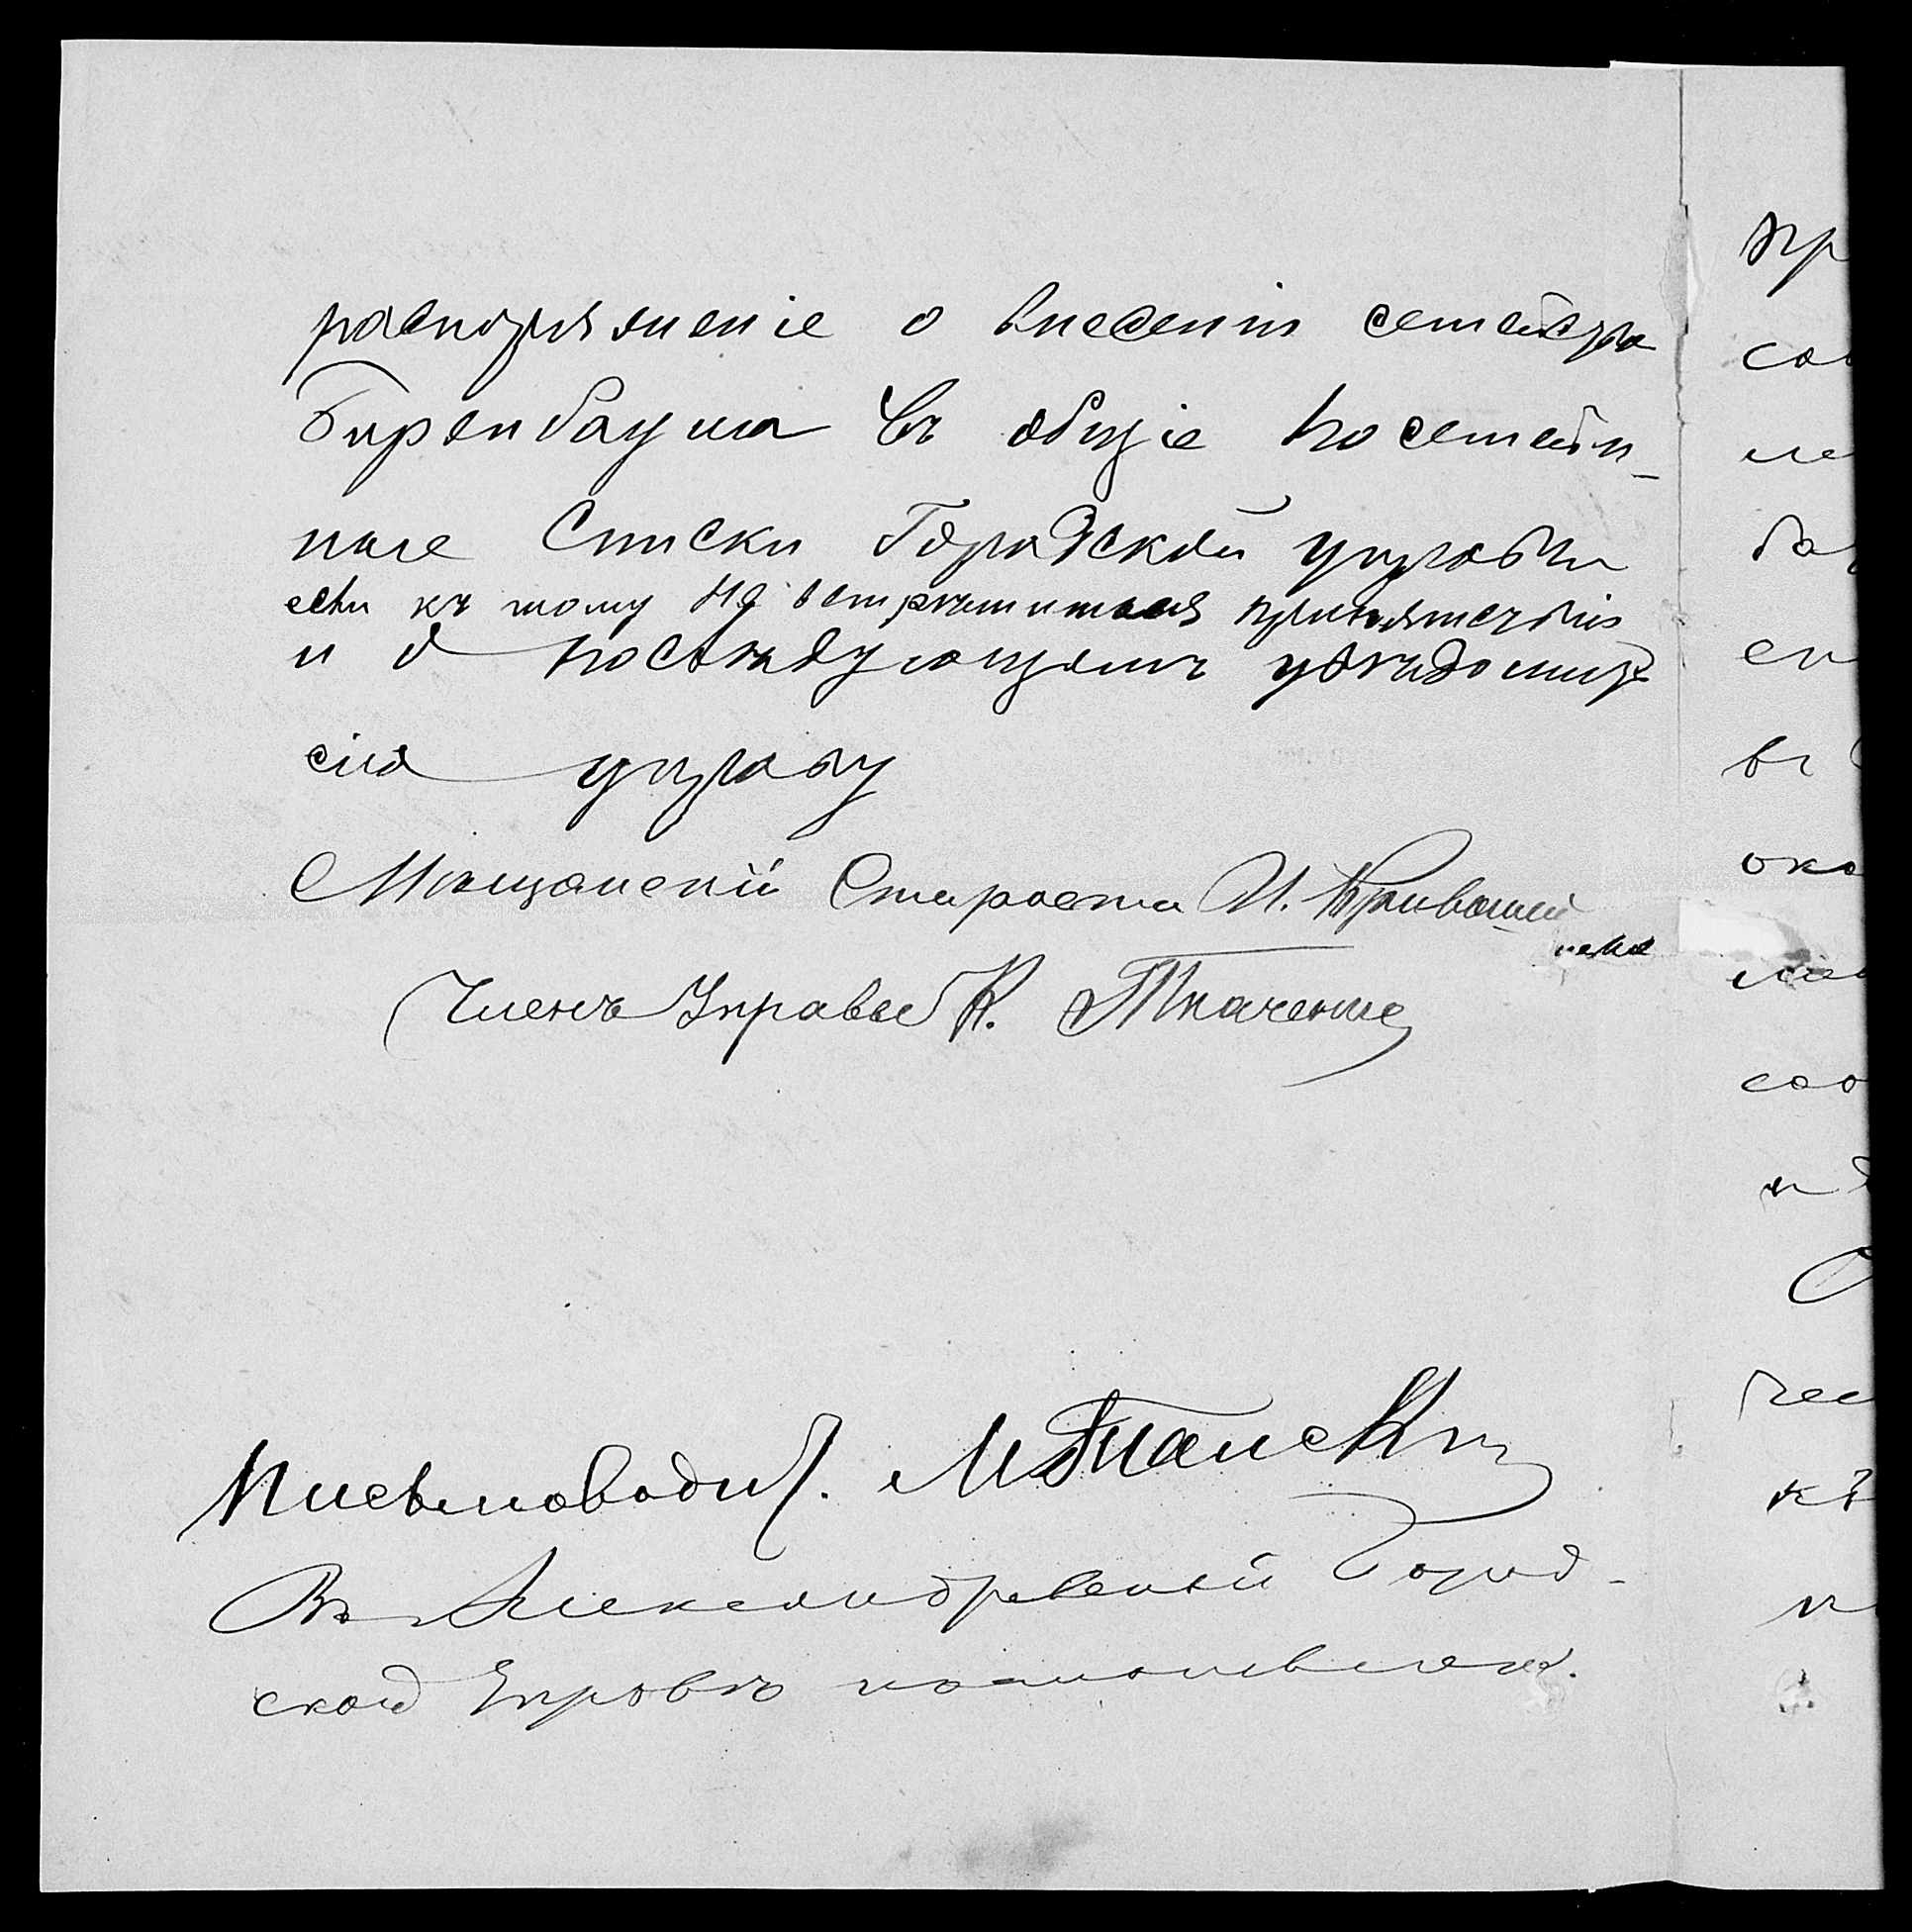 распоряженіе о внесеніи семейства
Биренбаума въ общіе посемейн-
ные Списки Городской управы
если къ тому не встрѣтится препятствій
и о послѣдующемъ увѣдомить
сію управу
Мѣщанскій Староста И. Кривошей
Членъ Управы К. Ткаченко
Письмоводит.
Въ Александрійской Город-
ской Управѣ
пр
со
ме
ба
ен
въ
око
соо
и
чес
къ